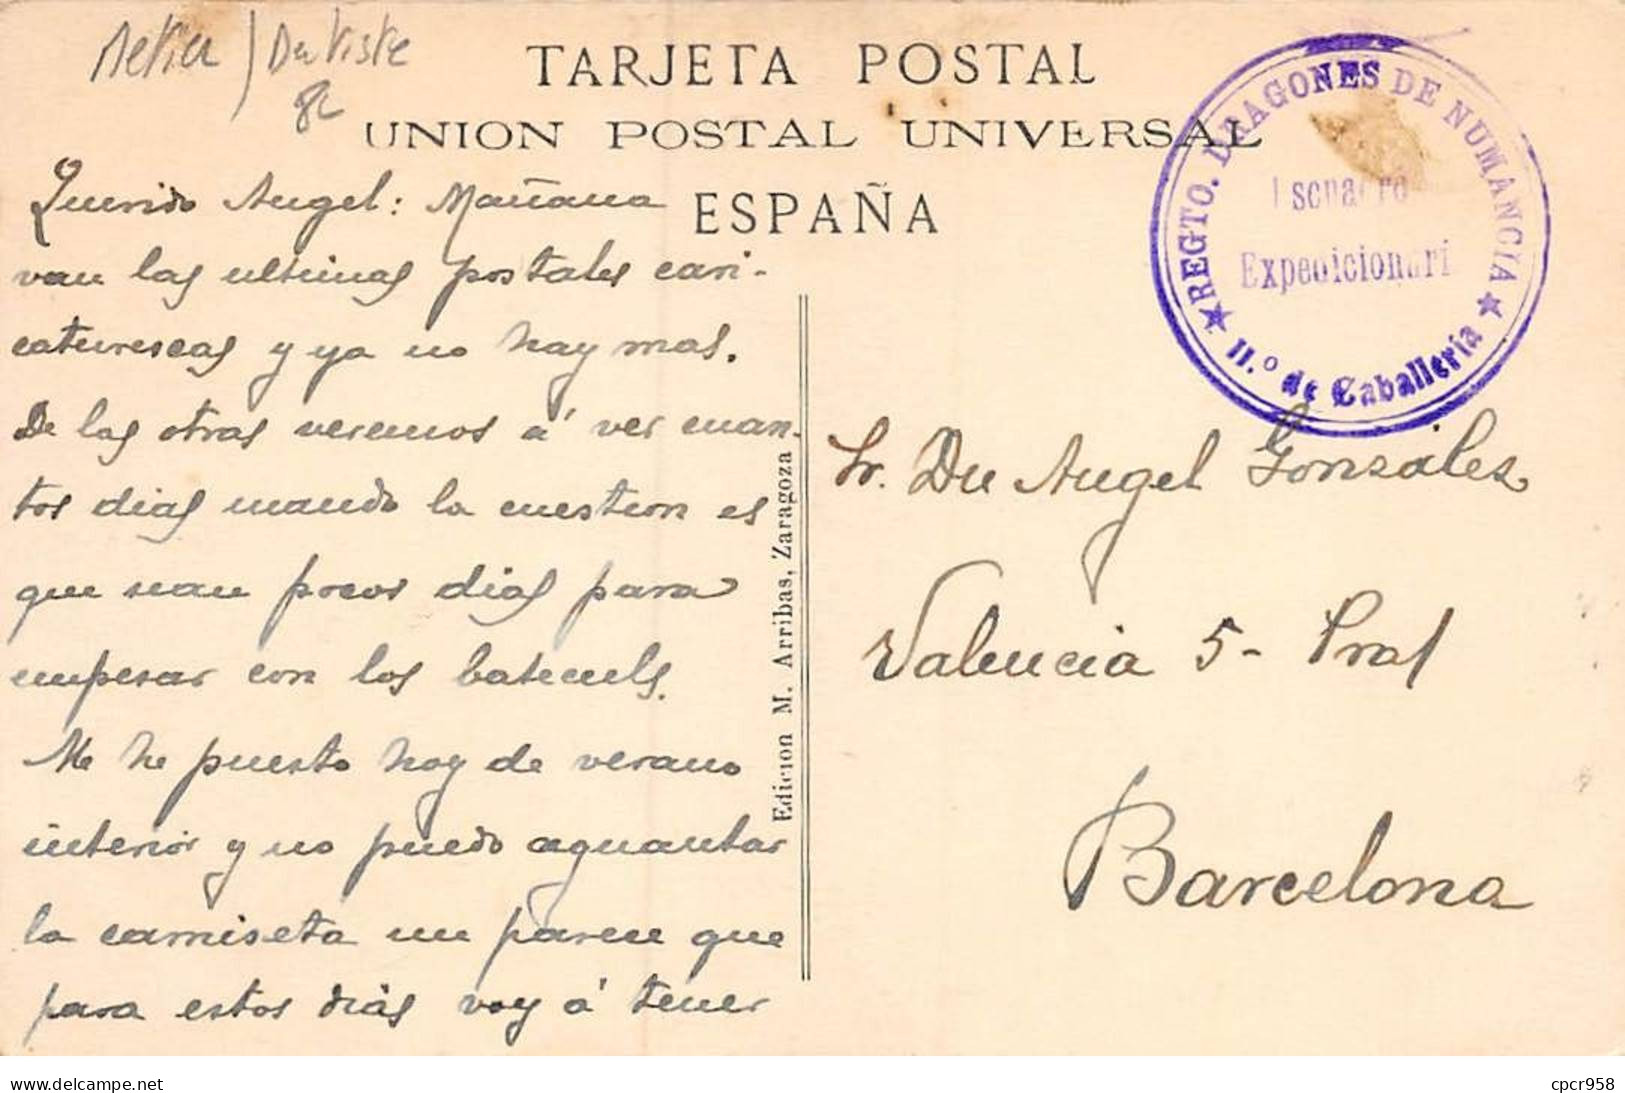 Metier / Dentiste
TARJETA POSTAL
UNION POSTAL UNIVERSAL
ESPAÑA
REGTO. DRAGONES DE NUMANCIA
Escuadron
Expedicionari
11.º de Caballería
Querido Angel: Mañana
van las ultimas postales cari-
caturescas y ya no hay mas.
De las otras veremos á ver cuan-
tos dias mando la cuestion es
que sean pocos dias para
empesar con los bateculs.
Me he puesto hoy de verano
interior y no puedo aguantar
la camiseta me parece que
para estos dias voy á tener
Edicion M. Arribas, Zaragoza
Sr. Dn Angel Gonzáles
Valencia 5 - Pral
Barcelona
www.delcampe.net
cpcr958